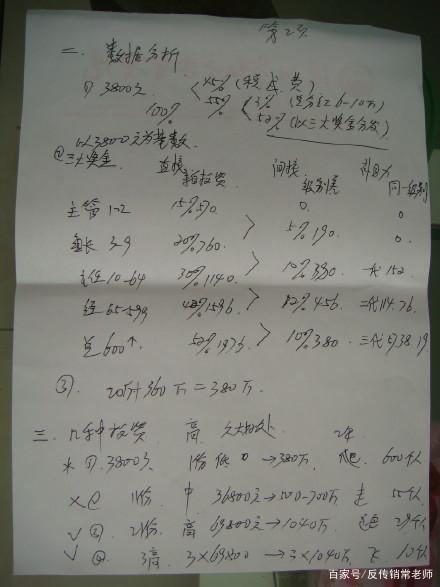 第2页
二、数据分析
① 3800元 45% (税 成 费)
100% 55% 3% (送分红6-10万)
52% (以三大奖金分发)
以3800元为基数
②三大奖金 直接 间接
新投资 级别差 同一级别
主管 1-2 15% 570. 0. 0
组长 3-9 20% 760. > 5% 190. 0.
主任 10-64 30% 1140. > 10% 380. 一代 152.
经 65-599 42% 1596. > 12% 456. 二代 114. 76.
总 600↑ 52% 1976. > 10% 380. 三代 57 38 19
③. 20万+360万=380万.
三. 几种投资 高 2年
* ① 3800元 1份 低 → 380万. 爬. 600个人
× ② 11份. 中. 36800元→500-700万 走
√ ③ 21份. 高 69800元→1040万. 29个人
√ ④ 3高. 3×69800→3×1040万. 飞.
百家号/反传销常老师